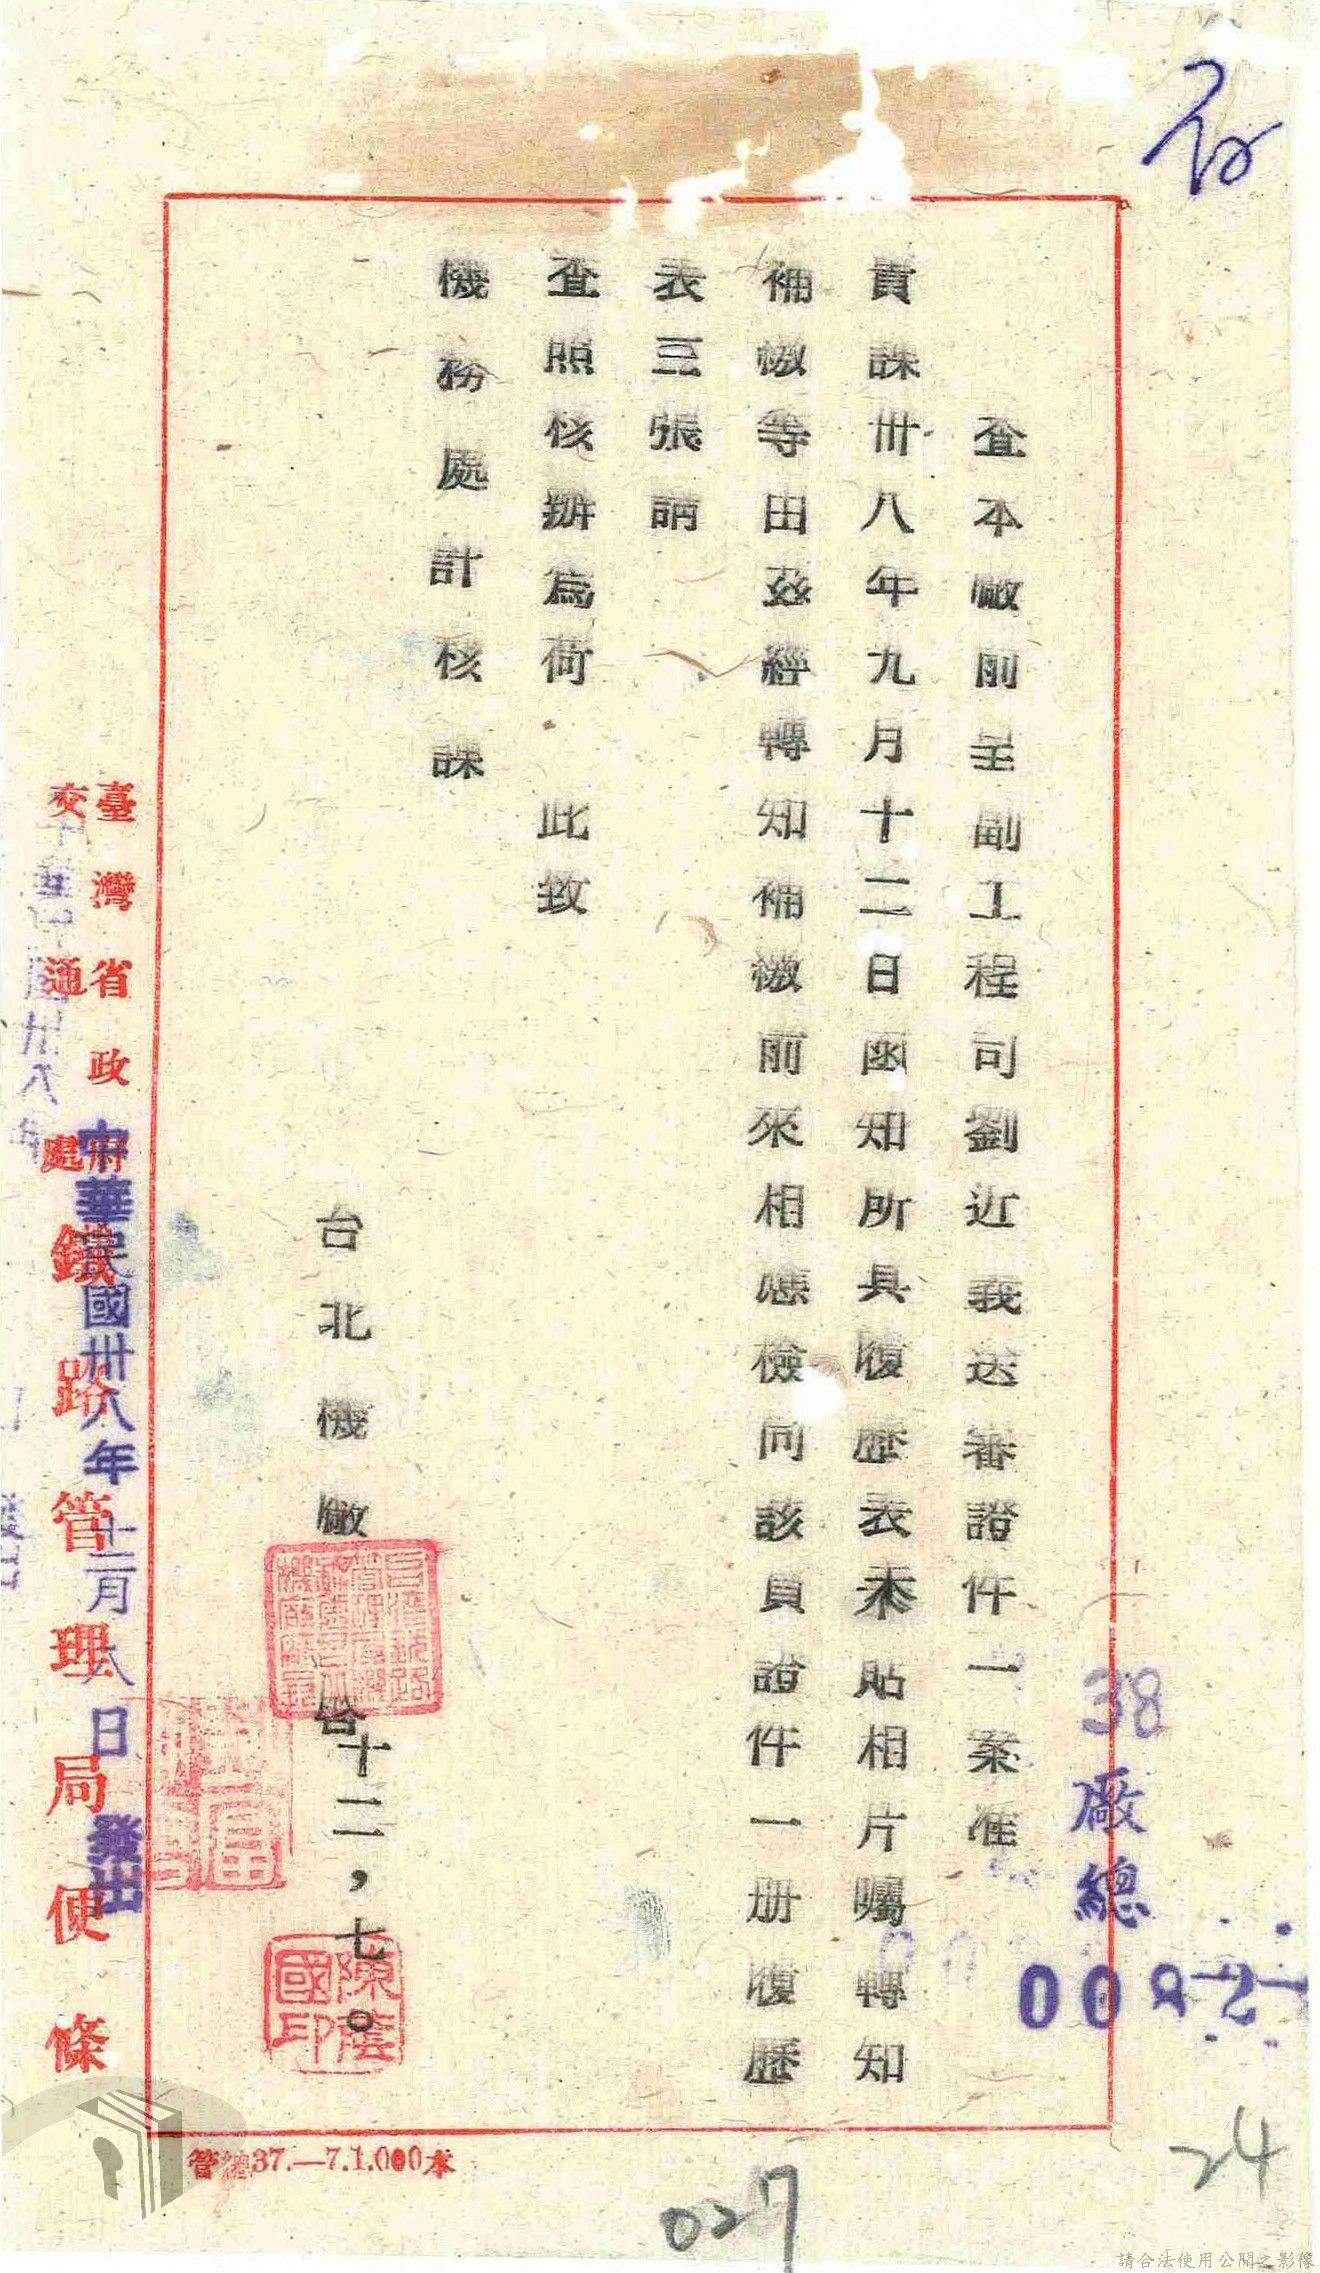 存
38
廠總
查本廠前呈副工程司劉近義送審證件一案准
貴課卅八年九月十二日函知所具履歷表未貼相片囑轉知
補繳等由茲經轉知補繳前來相應檢同該員證件一册履歷
表三張請
查照核辦為荷 此致
機務處計核課
台北機廠 啓 十二,七。
陳蔭國印
臺灣省政府
交通處
鐵路管理局便條
中華民國卅八年十二月八日發出
管總37.—7.1.000本
027
24
請合法使用公開之影像